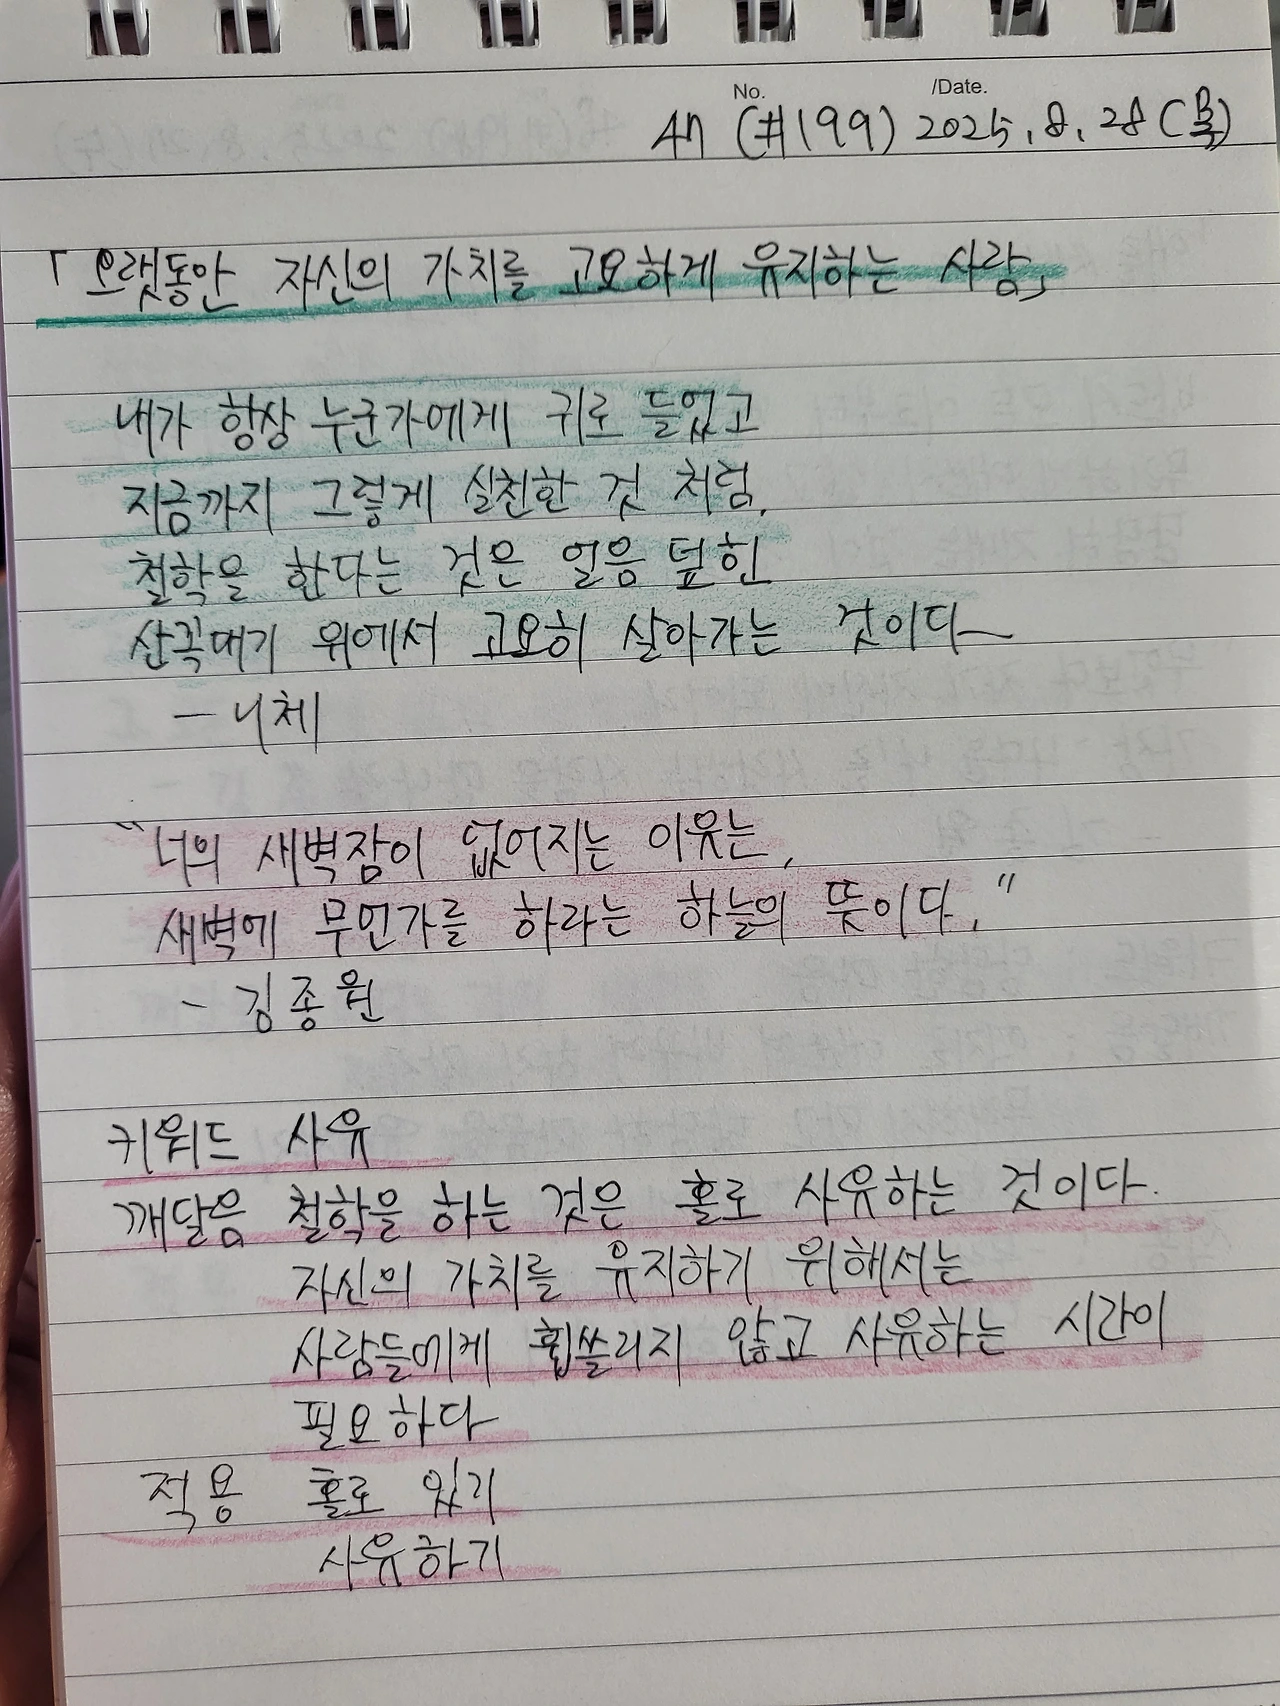 No. /Date.
47 (#199) 2025. 8. 28 (목)
「오랫동안 자신의 가치를 고요하게 유지하는 사람」
내가 항상 누군가에게 귀로 들었고
지금까지 그렇게 실천한 것 처럼,
철학을 한다는 것은 얼음 덮힌
산꼭대기 위에서 고요히 살아가는 것이다
- 니체
"너의 새벽잠이 없어지는 이유는,
새벽에 무언가를 하라는 하늘의 뜻이다."
- 김종원
키워드 사유
깨달음 철학을 하는 것은 홀로 사유하는 것이다.
자신의 가치를 유지하기 위해서는
사람들에게 휩쓸리지 않고 사유하는 시간이
필요하다
적용 홀로 있기
사유하기